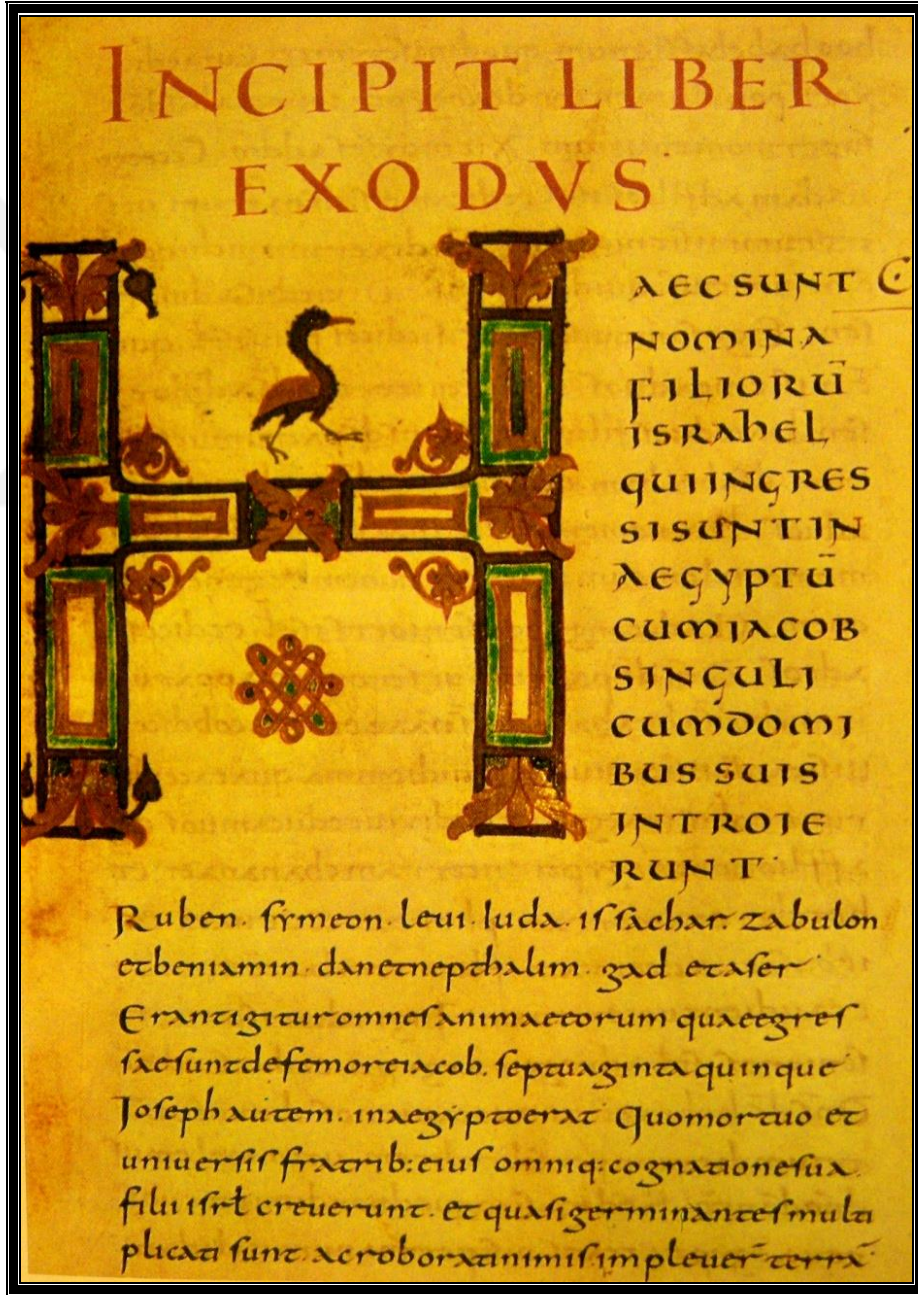 INCIPIT LIBER
EXODVS
HAEC SUNT
NOMINA
FILIORŪ
ISRAHEL
QUI INGRES
SI SUNT IN
AEGYPTŪ
CUM IACOB
SINGULI
CUM DOMI
BUS SUIS
INTROIE
RUNT·
Ruben· symeon· levi· Iuda· issachar· zabulon
et beniamin· dan et nepthalim· gad et aser·
Erant igitur omnes animae eorum quae egres
sae sunt de femore iacob· septuaginta quinque·
Ioseph autem· in aegypto erat· Quo mortuo et
universis fratrib: eius omniq: cognatione sua·
filii isrł creverunt· et quasi germinantes multi
plicati sunt· ac roborati nimis impleuer̄ terrā